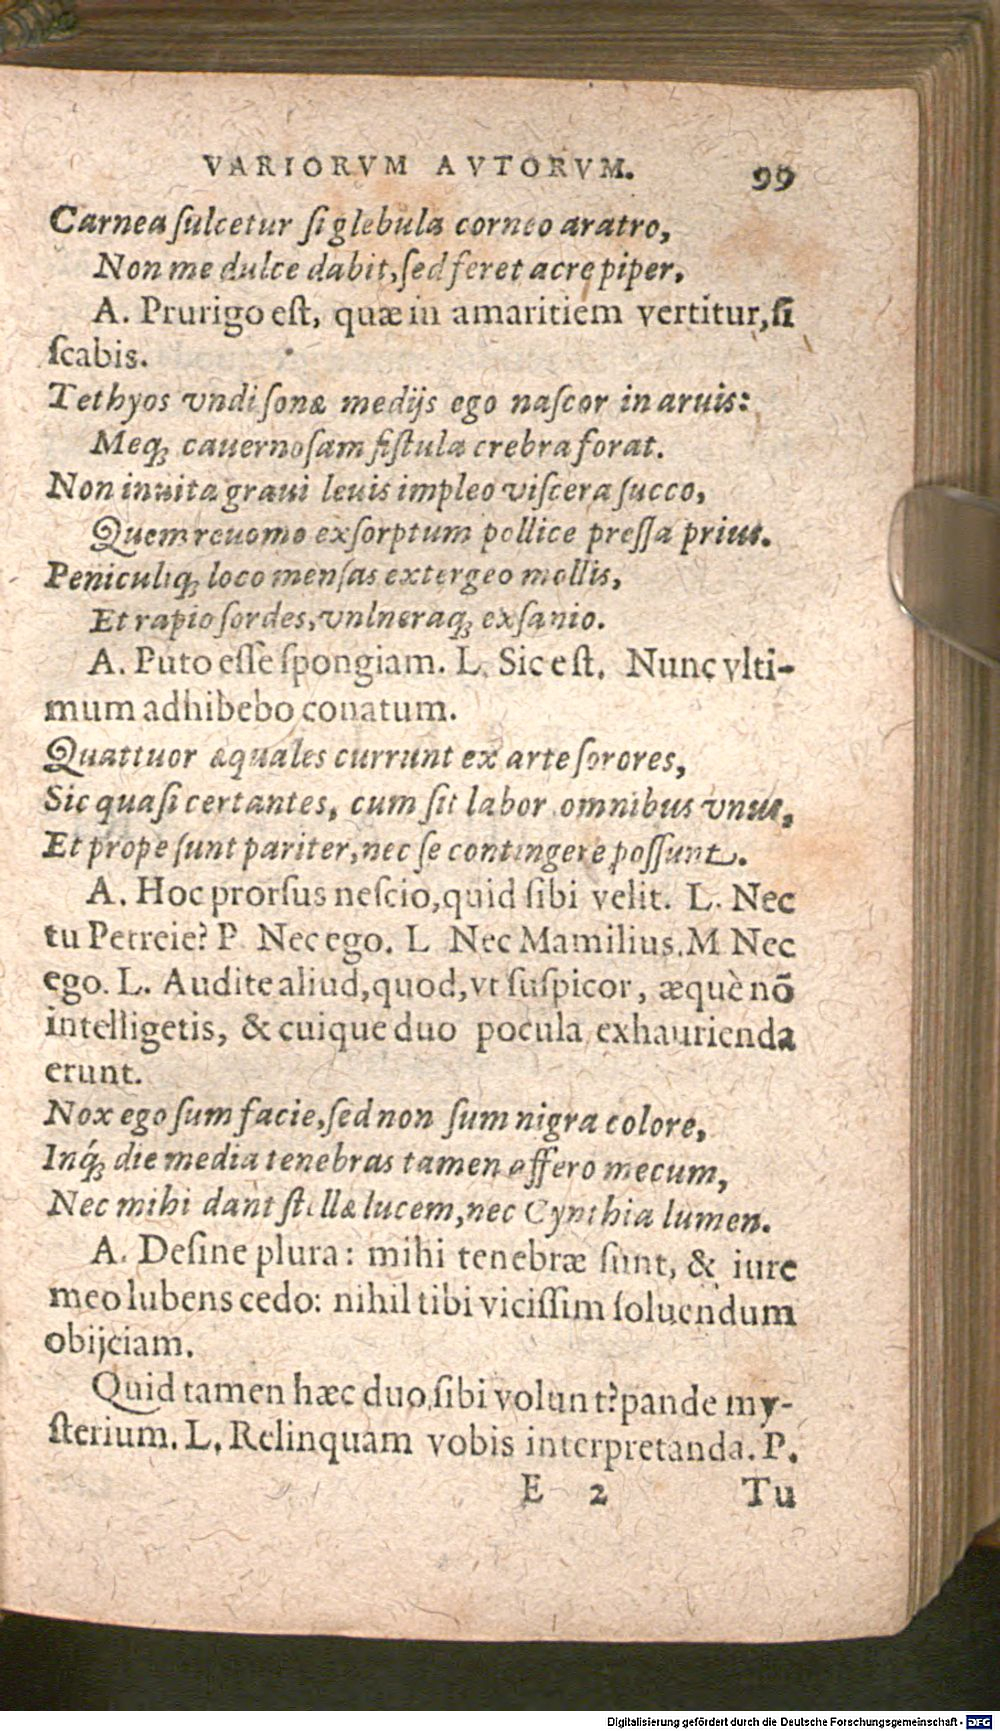 VARIORVM AVTORVM. 99
Carnea ſulcetur ſi glebula corneo aratro,
Non me dulce dabit, ſed feret acre piper.
A. Prurigo eſt, quæ in amaritiem vertitur, ſi
ſcabis.
Tethyos vndiſonæ medijs ego naſcor in aruis:
Meq́; cauernoſam fiſtula crebra forat.
Non inuita graui leuis impleo viſcera ſucco,
Quem reuomo exſorptum pollice preſſa prius.
Peniculiq́; loco menſas extergeo mollis,
Et rapio ſordes, vnlneraq́; exſanio.
A. Puto eſſe ſpongiam. L. Sic eſt. Nunc vlti-
mum adhibebo conatum.
Quattuor æquales currunt ex arte ſorores,
Sic quaſi certantes, cum ſit labor omnibus vnus,
Et prope ſunt pariter, nec ſe contingere poſſunt.
A. Hoc prorſus neſcio, quid ſibi velit. L. Nec
tu Petreie? P. Nec ego. L. Nec Mamilius. M. Nec
ego. L. Audite aliud, quod, vt ſuſpicor, æquè nō
intelligetis, & cuique duo pocula exhaurienda
erunt.
Nox ego ſum facie, ſed non ſum nigra colore,
Inq́; die media tenebras tamen affero mecum,
Nec mihi dant ſtellæ lucem, nec Cynthia lumen.
A. Deſine plura: mihi tenebræ ſunt, & iure
meo lubens cedo: nihil tibi viciſſim ſoluendum
obijciam.
Quid tamen hæc duo ſibi volunt? pande my-
ſterium. L. Relinquam vobis interpretanda. P.
E 2 Tu
Digitalisierung gefördert durch die Deutsche Forschungsgemeinschaft - DFG